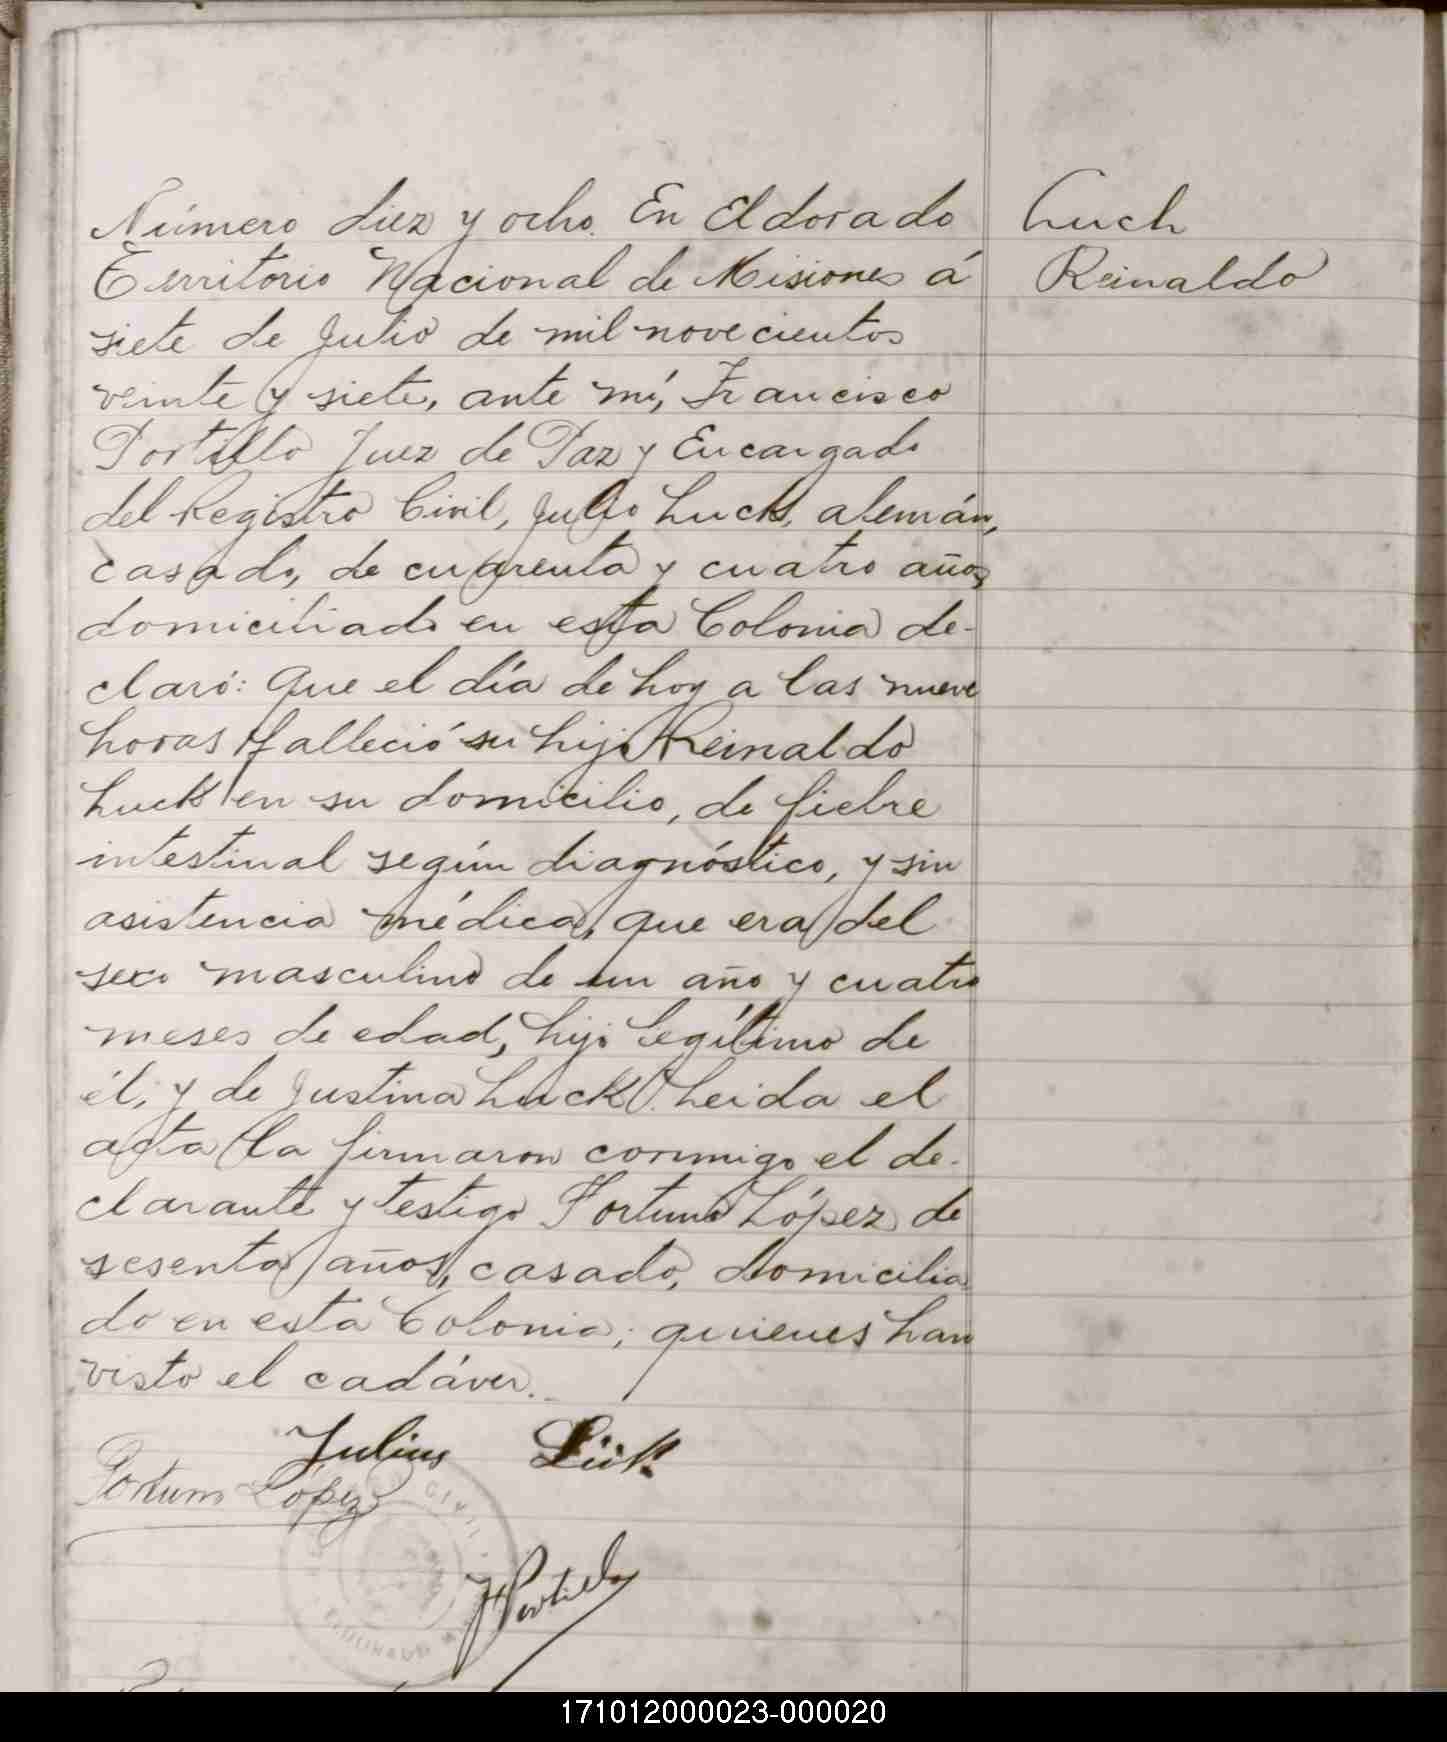 Número diez y ocho. En Eldorado
Territorio Nacional de Misiones á
siete de Julio de mil novecientos
veinte y siete, ante mí, Francisco
Portillo Juez de Paz y Encargado
del Registro Civil, Julio Luck, alemán,
casado, de cuarenta y cuatro años,
domiciliado en esta Colonia de-
claró: Que el día de hoy a las nueve
horas falleció su hijo Reinaldo
Luck en su domicilio, de fiebre
intestinal según diagnóstico, y sin
asistencia médica, que era del
sexo masculino de un año y cuatro
meses de edad, hijo legítimo de
él, y de Justina Luck. Leida el
acta la firmaron conmigo el de-
clarante y testigo Fortuno López de
sesenta años, casado, domicilia
do en esta Colonia; quienes han
visto el cadáver.
Julius Lück
Fortuno López
F Portillo
Luch
Reinaldo
CIVIL
171012000023-000020